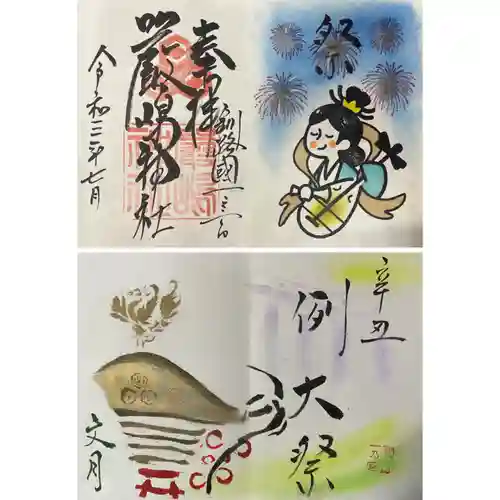 奉拝
釧路國一之宮
厳嶋神社
令和三年七月
祭
辛丑
例大祭
文月